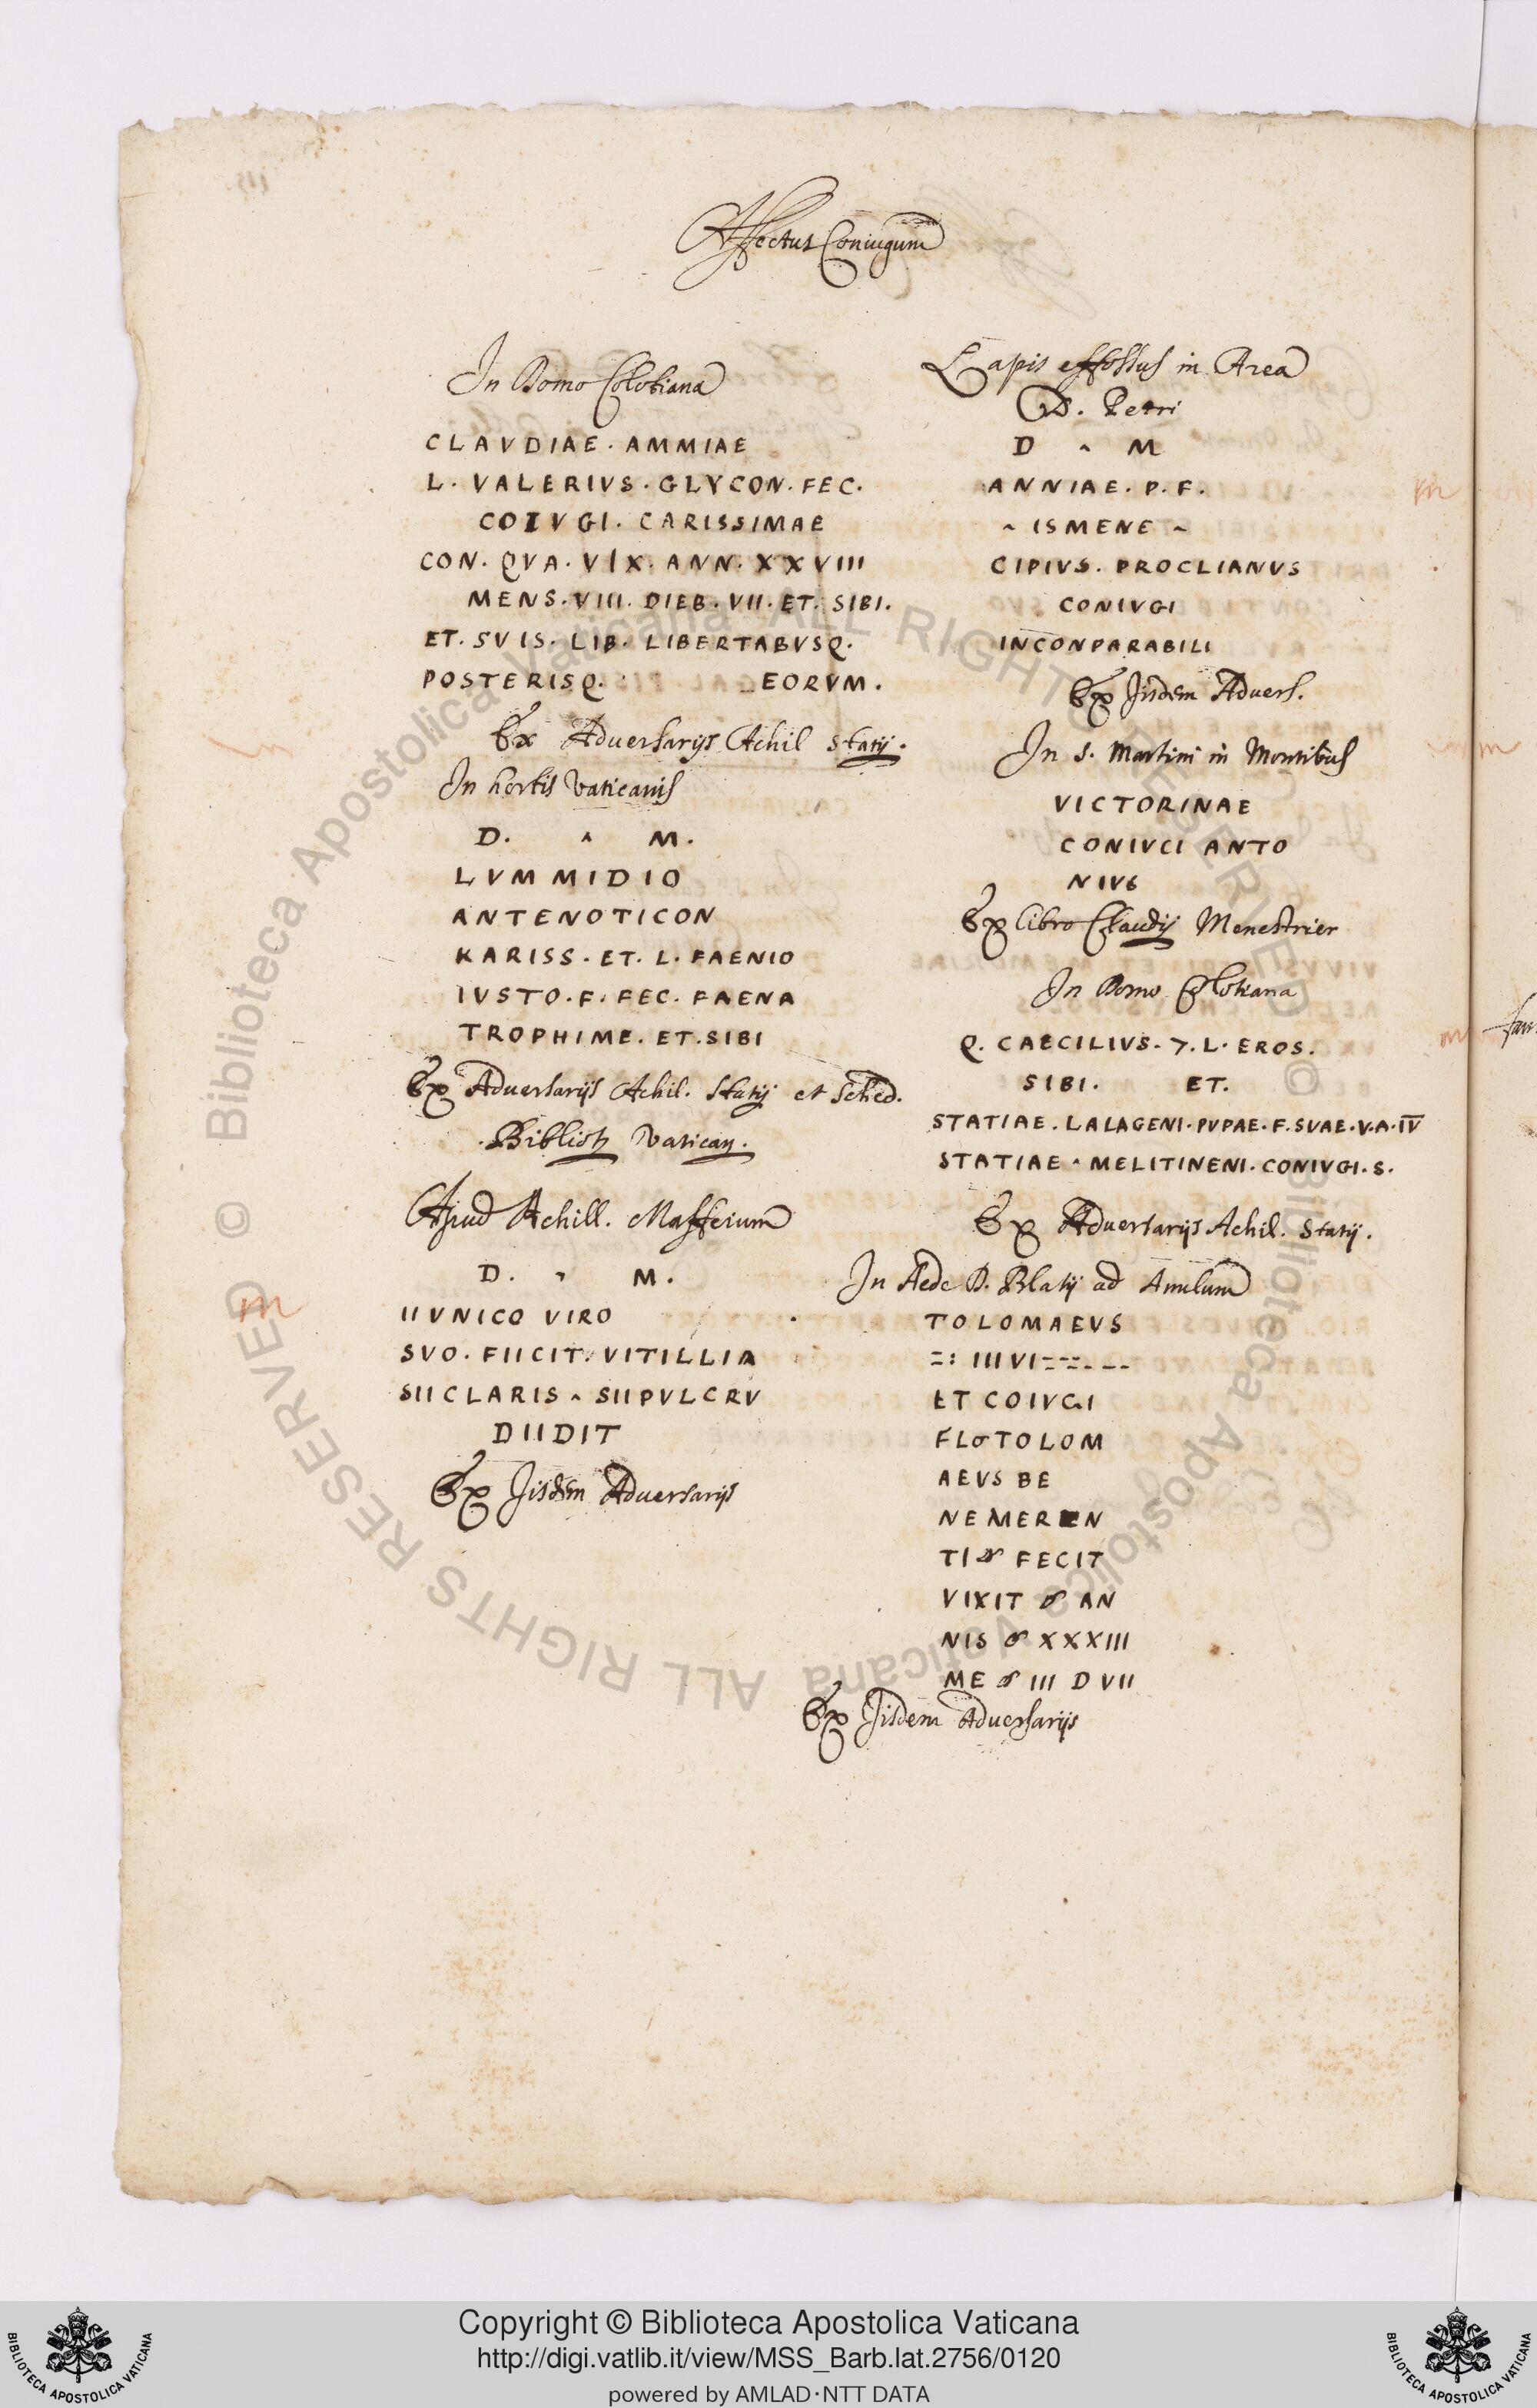 Affectus Coniugum
In Domo Colotiana
CLAVDIAE . AMMIAE
L . VALERIVS . GLYCON . FEC .
COIVGI . CARISSIMAE
CON . QVA . VIX . ANN . XXVIII
MENS . VIII . DIEB . VII . ET . SIBI .
ET . SVIS . LIB . LIBERTABVSQ .
POSTERISQ . EORVM .
Ex Adversarijs Achil Statij .
In hortis Vaticanis
D . ^ M .
LVMMIDIO
ANTENOTICON
KARISS . ET . L . FAENIO
IVSTO . F . FEC . FAENA
TROPHIME . ET . SIBI
Ex Adversarijs Achil. Statij et Sched.
Biblioth Vatican .
Apud Achill. Maffeium
D . ^ M .
IIVNICO VIRO
SVO . FIICIT . VITILLIA
SIICLARIS ^ SIIPVLCRV
DIIDIT
Ex Jisdem Adversarijs
Lapis effossus in Area
D. Petri
D ^ M
ANNIAE . P . F .
^ ISMENE ~
CIPIVS . PROCLIANVS
CONIVGI
INCONPARABILI
Ex Jisdem Advers.
In S. Martini in Montibus
VICTORINAE
CONIVCI ANTO
NIVS
Ex libro Claudij Menestrier
In Domo Colotiana
Q . CAECILIVS . 7 . L . EROS .
SIBI . ET .
STATIAE . LALAGENI . PVPAE . F . SVAE . V . A . IV
STATIAE ^ MELITINENI . CONIVGI . S .
Ex Adversarijs Achil. Statij .
In Aede D. Blasij ad Anulum
TOLOMAEVS
=: III VI =-=-.--
ET COIVGI
FL σ TOLOM
AEVS BE
NEMEREN
TI σ FECIT
VIXIT σ AN
NIS σ XXXIII
ME σ III D VII
Ex Jisdem Adversarijs
Copyright © Biblioteca Apostolica Vaticana
http://digi.vatlib.it/view/MSS_Barb.lat.2756/0120
powered by AMLAD·NTT DATA
BIBLIOTECA APOSTOLICA VATICANA
BIBLIOTECA APOSTOLICA VATICANA
© Biblioteca Apostolica Vaticana ALL RIGHTS RESERVED
© Biblioteca Apostolica Vaticana ALL RIGHTS RESERVED